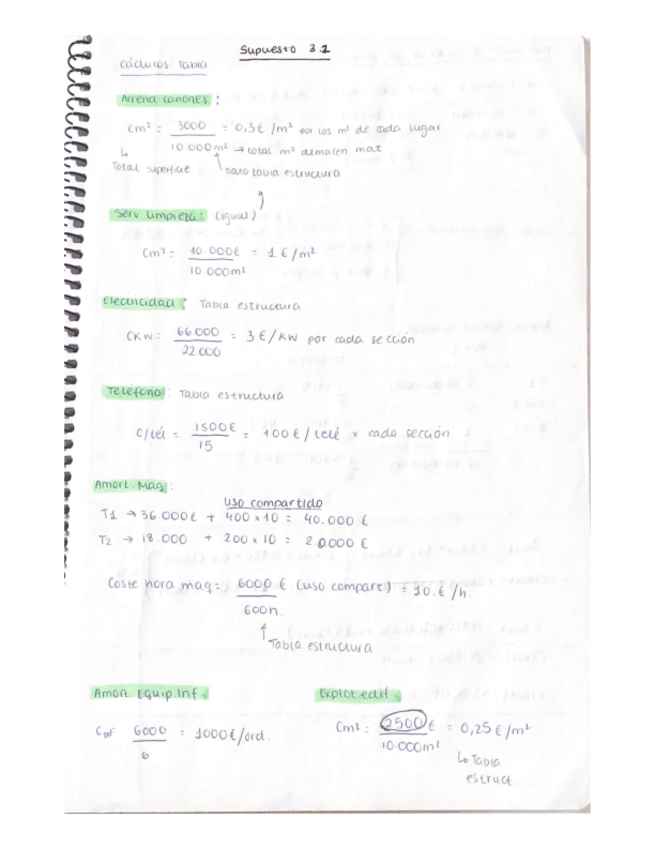 Supuesto 3.1
Cálculos Tabla
Arrend canones:
Cm² = 3000 / 10.000m² = 0,3€/m² por los m² de cada lugar
→ total m² almacen mat
↳ Total superficie
dato tabla estructura
Serv limpieza: (igual)
Cm² = 10.000€ / 10.000m² = 1€/m²
Electricidad: Tabla estructura
CKW = 66.000 / 22.000 = 3€/KW por cada sección
Teléfono: Tabla estructura
C/tél = 1500€ / 15 = 100€/telé × cada sección
Amort. Maq:
uso compartido
T1 → 36.000€ + 400×10 = 40.000€
T2 → 18.000 + 200×10 = 20.000€
Coste hora maq = 6000€ (uso compart) / 600h. = 10.€/h.
Tabla estructura
Amort. Equip.Inf.
6000 / 6 = 1000€/ord.
Explot edif.
Cm² = 2500€ / 10.000m² = 0,25€/m²
↳ Tabla
estruct